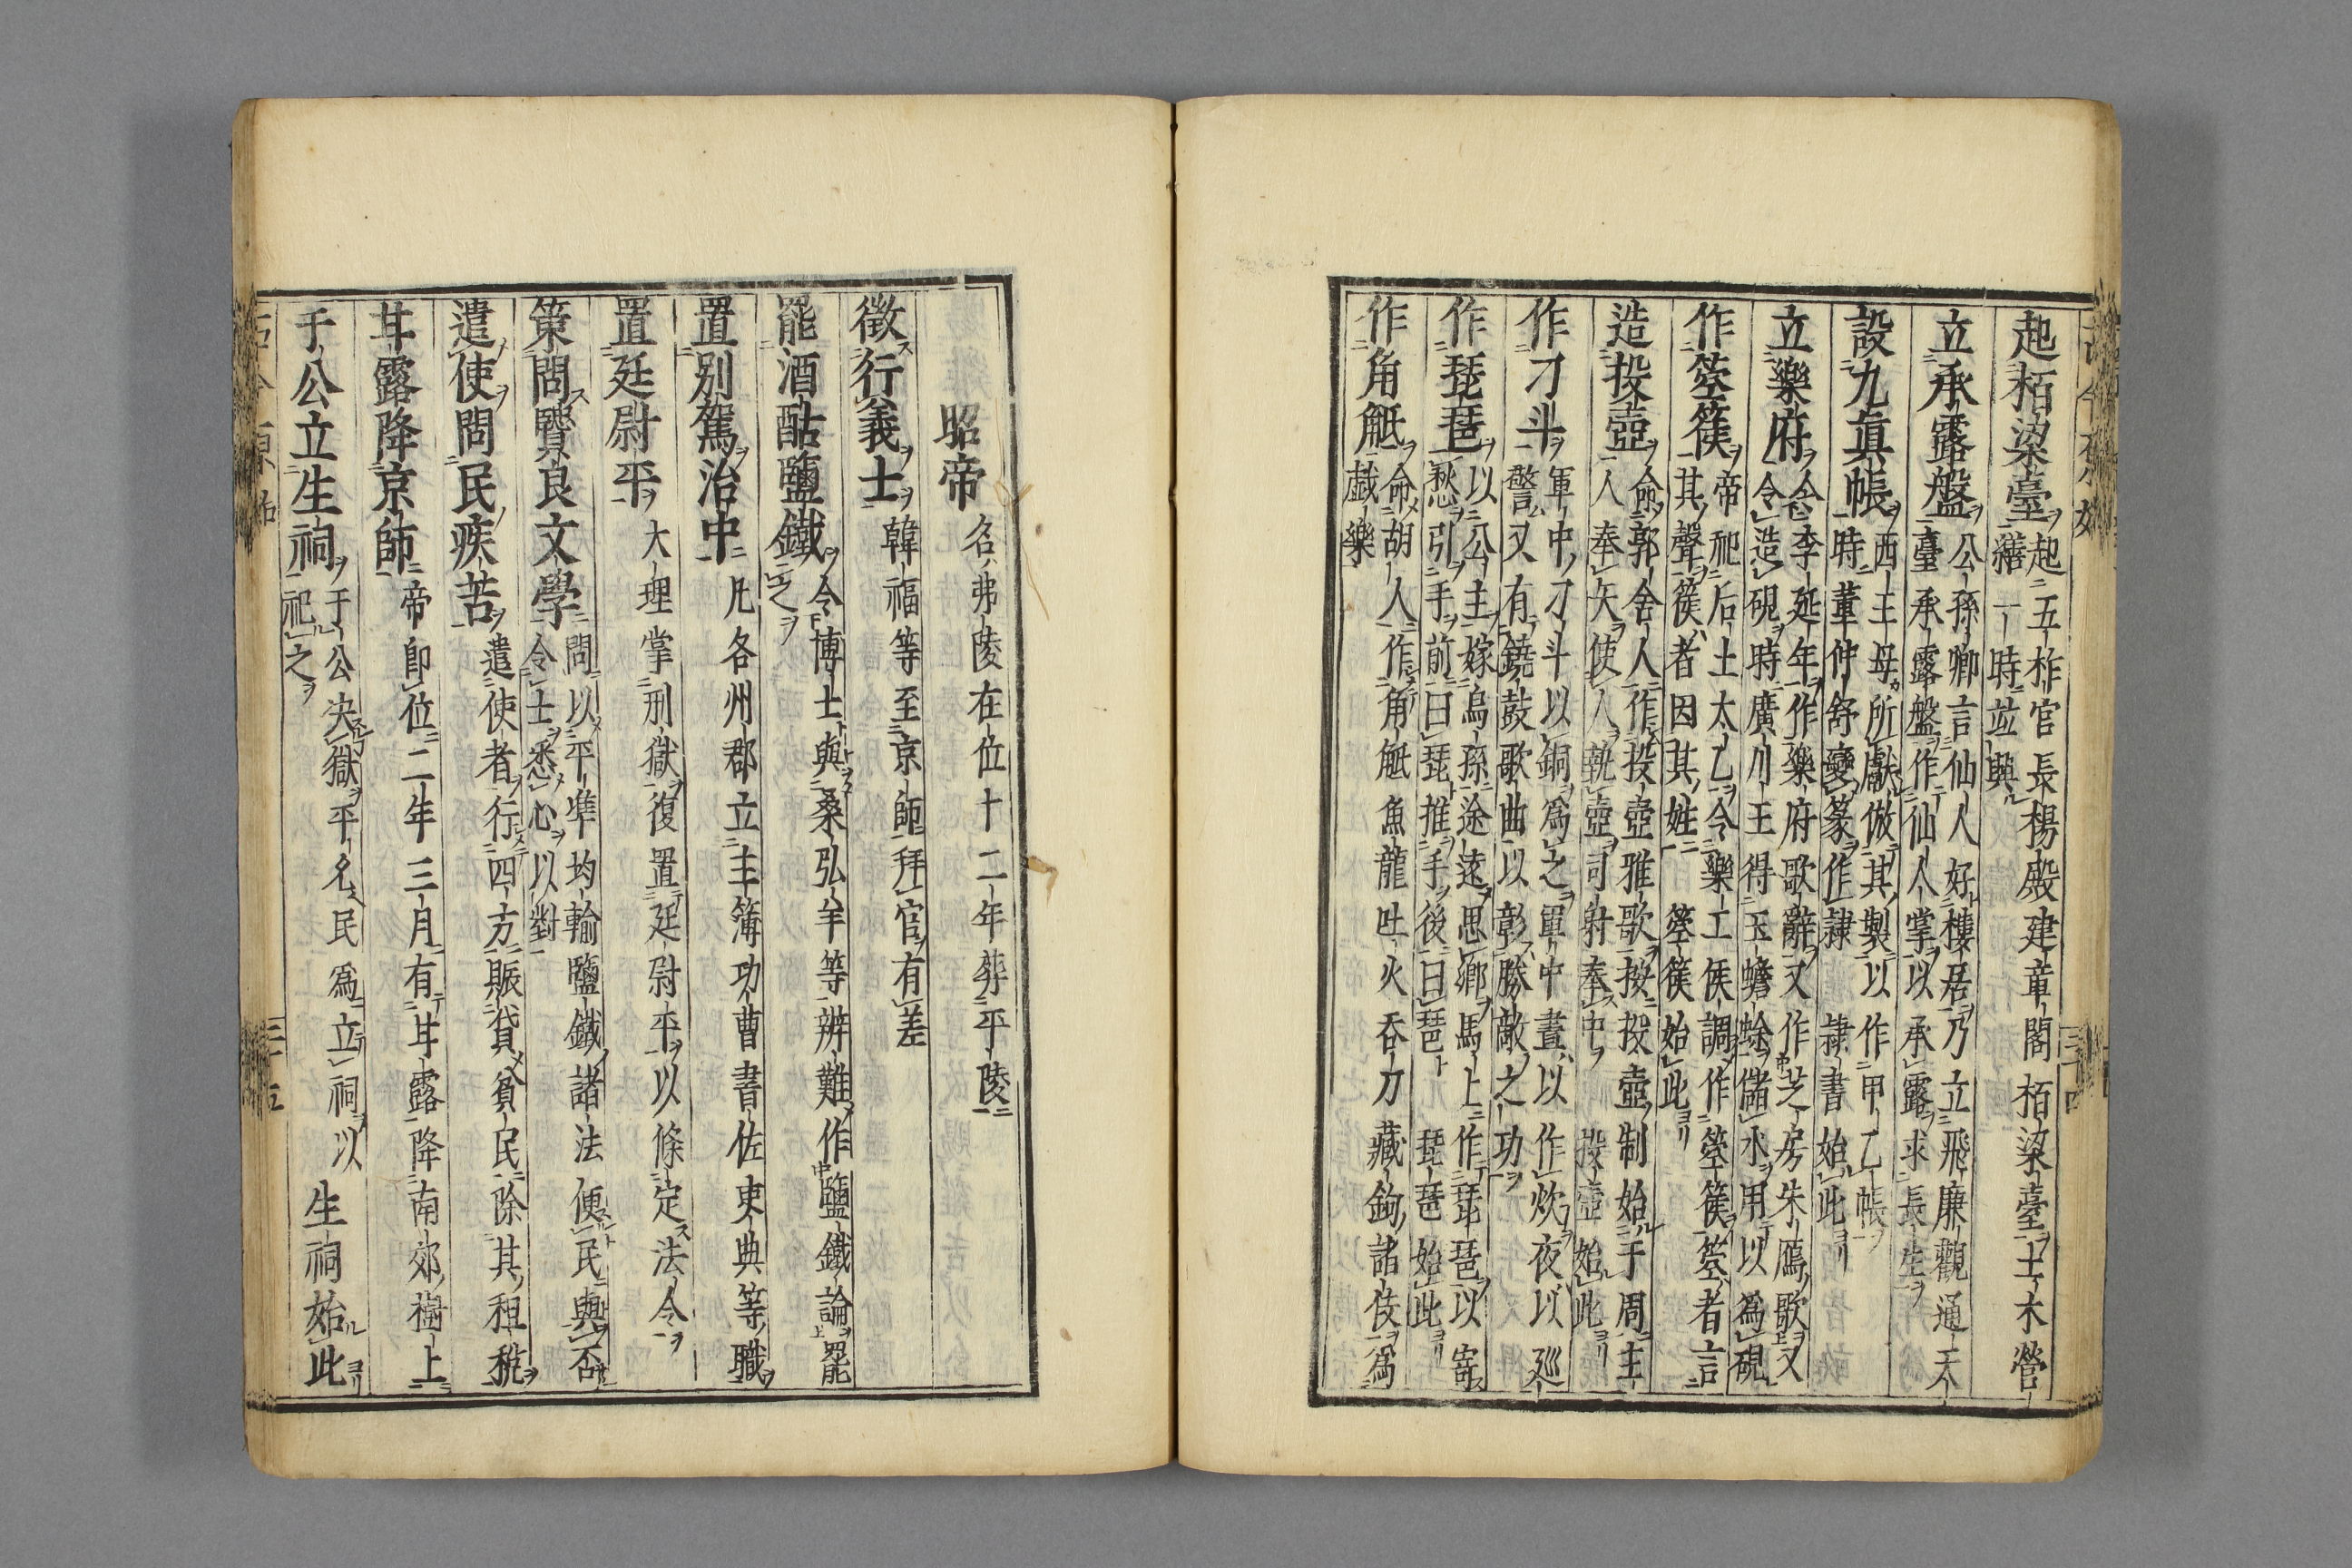 起栢梁臺 起五柞官長楊殿建章閣栢梁臺土木營
繕一時並興
立承露盤 公孫卿言仙人好樓居乃立飛廉觀通天
臺承露盤作仙人掌以承露求長生
設九眞帳 西王母所獻倣其製以作甲乙帳
時董仲舒變篆作隷隷書始此
立樂府 令李延年作樂府歌辭又作芝房朱鴈歌又
令造硯時廣川王得玉蟾蜍儲水用以爲硯
作箜篌 帝祀后土太乙令樂工侯調作箜篌箜者言
其聲篌者因其姓箜篌始此
造投壺 命郭舍人作投壺雅歌按投壺制始于周主
人奉矢使人執壺司射奉中投壺始此
作刁斗 軍中刁斗以銅爲之軍中晝以作炊夜以廵
警又有鐃鼓歌曲以彰勝敵之功
作琵琶 以公主嫁烏孫途遠思鄉馬上作琵琶以寄
愁引手前曰琵推手後曰琶琵琶始此
作角觝 命胡人作角觝魚龍吐火吞刀藏鉤諸伎爲
戯樂
三十四
昭帝 名弗陵在位十二年葬平陵
徴行義士 韓福等至京師拜官有差
罷酒酤鹽鐵 令博士與桑弘羊等辨難作鹽鐵論罷
之
置別駕治中 凡各州郡立主簿功曹書佐吏典等職
置廷尉平 大理掌刑獄復置廷尉平以條定法令
策問賢良文學 問以平準均輸鹽鐵諸法便民與否
令士悉心以對
遣使問民疾苦 遣使者行四方賑貸貧民除其租税
甘露降京師 帝卽位二年三月有甘露降南郊樹上
于公立生祠 于公决獄平名民爲立祠以生祠始此
祀之
三十五